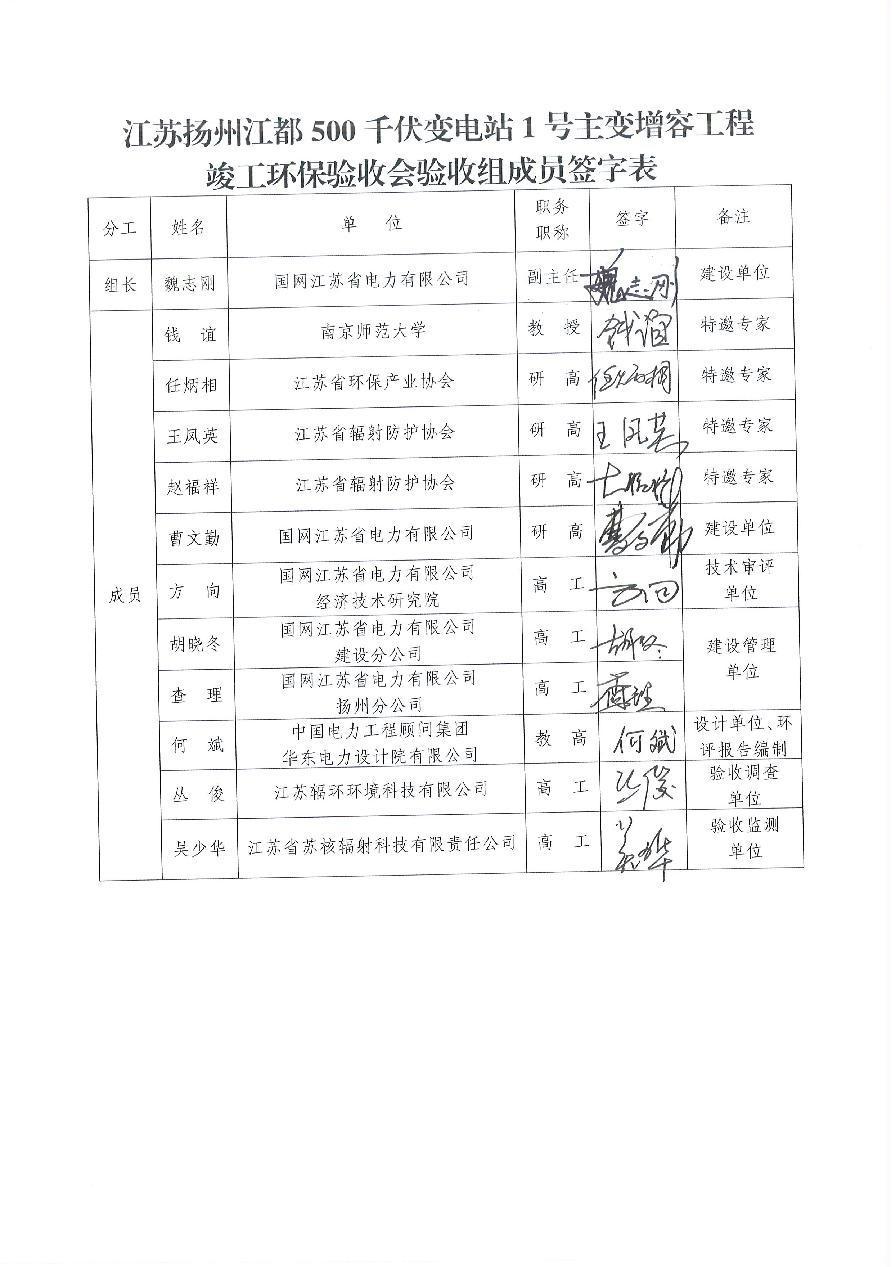 江苏扬州江都 500 千伏变电站 1 号主变增容工程
竣工环保验收会验收组成员签字表
分工 姓名 单 位 职务 职称 签字 备注
组长 魏志刚 国网江苏省电力有限公司 副主任 魏志刚 建设单位
成员
钱 谊 南京师范大学 教 授 钱谊 特邀专家
任炳相 江苏省环保产业协会 研 高 任炳相 特邀专家
王凤英 江苏省辐射防护协会 研 高 王凤英 特邀专家
赵福祥 江苏省辐射防护协会 研 高 特邀专家
曹文勤 国网江苏省电力有限公司 研 高 曹文勤 建设单位
方 向 国网江苏省电力有限公司 经济技术研究院 高 工 方向 技术审评 单位
胡晓冬 国网江苏省电力有限公司 建设分公司 高 工 建设管理 单位
查 理 国网江苏省电力有限公司 扬州分公司 高 工
何 斌 中国电力工程顾问集团 华东电力设计院有限公司 教 高 何斌 设计单位、环 评报告编制
丛 俊 江苏辐环环境科技有限公司 高 工 丛俊 验收调查 单位
吴少华 江苏省苏核辐射科技有限责任公司 高 工 验收监测 单位